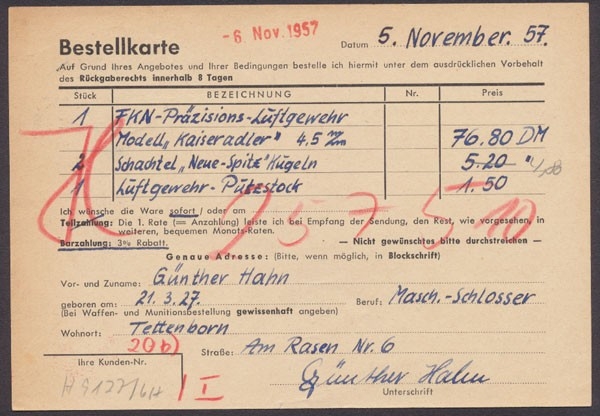 -6. Nov. 1957
Bestellkarte
Datum 5. November. 57.
Auf Grund Ihres Angebotes und Ihrer Bedingungen bestelle ich hiermit unter dem ausdrücklichen Vorbehalt
des Rückgaberechts innerhalb 8 Tagen
Stück BEZEICHNUNG Nr. Preis
1 FKN-Präzisions-Luftgewehr
Modell „Kaiseradler" 4,5 mm 76.80 DM
2 Schachtel „Neue-Spitz" Kugeln 5.20 "
1 Luftgewehr-Putzstock 1.50
Ich wünsche die Ware sofort / oder am
Teilzahlung: Die 1. Rate (= Anzahlung) leiste ich bei Empfang der Sendung, den Rest, wie vorgesehen, in
weiteren, bequemen Monats-Raten.
Barzahlung: 3% Rabatt. — Nicht gewünschtes bitte durchstreichen —
257510
Genaue Adresse: (Bitte, wenn möglich, in Blockschrift)
Vor- und Zuname: Günther Hahn
geboren am: 21.3.27. Beruf: Masch.-Schlosser
(Bei Waffen- und Munitionsbestellung gewissenhaft angeben)
Wohnort: Tettenborn
20b)
Straße: Am Rasen Nr. 6
Ihre Kunden-Nr.
I
Günther Hahn
Unterschrift